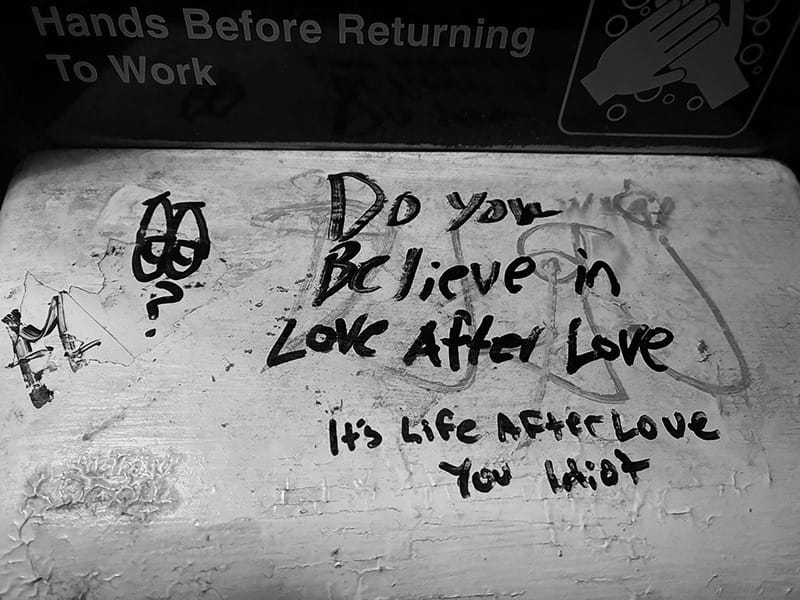 Hands Before Returning
To Work
Do you
Believe in
Love After Love
It's Life After Love
You Idiot
?